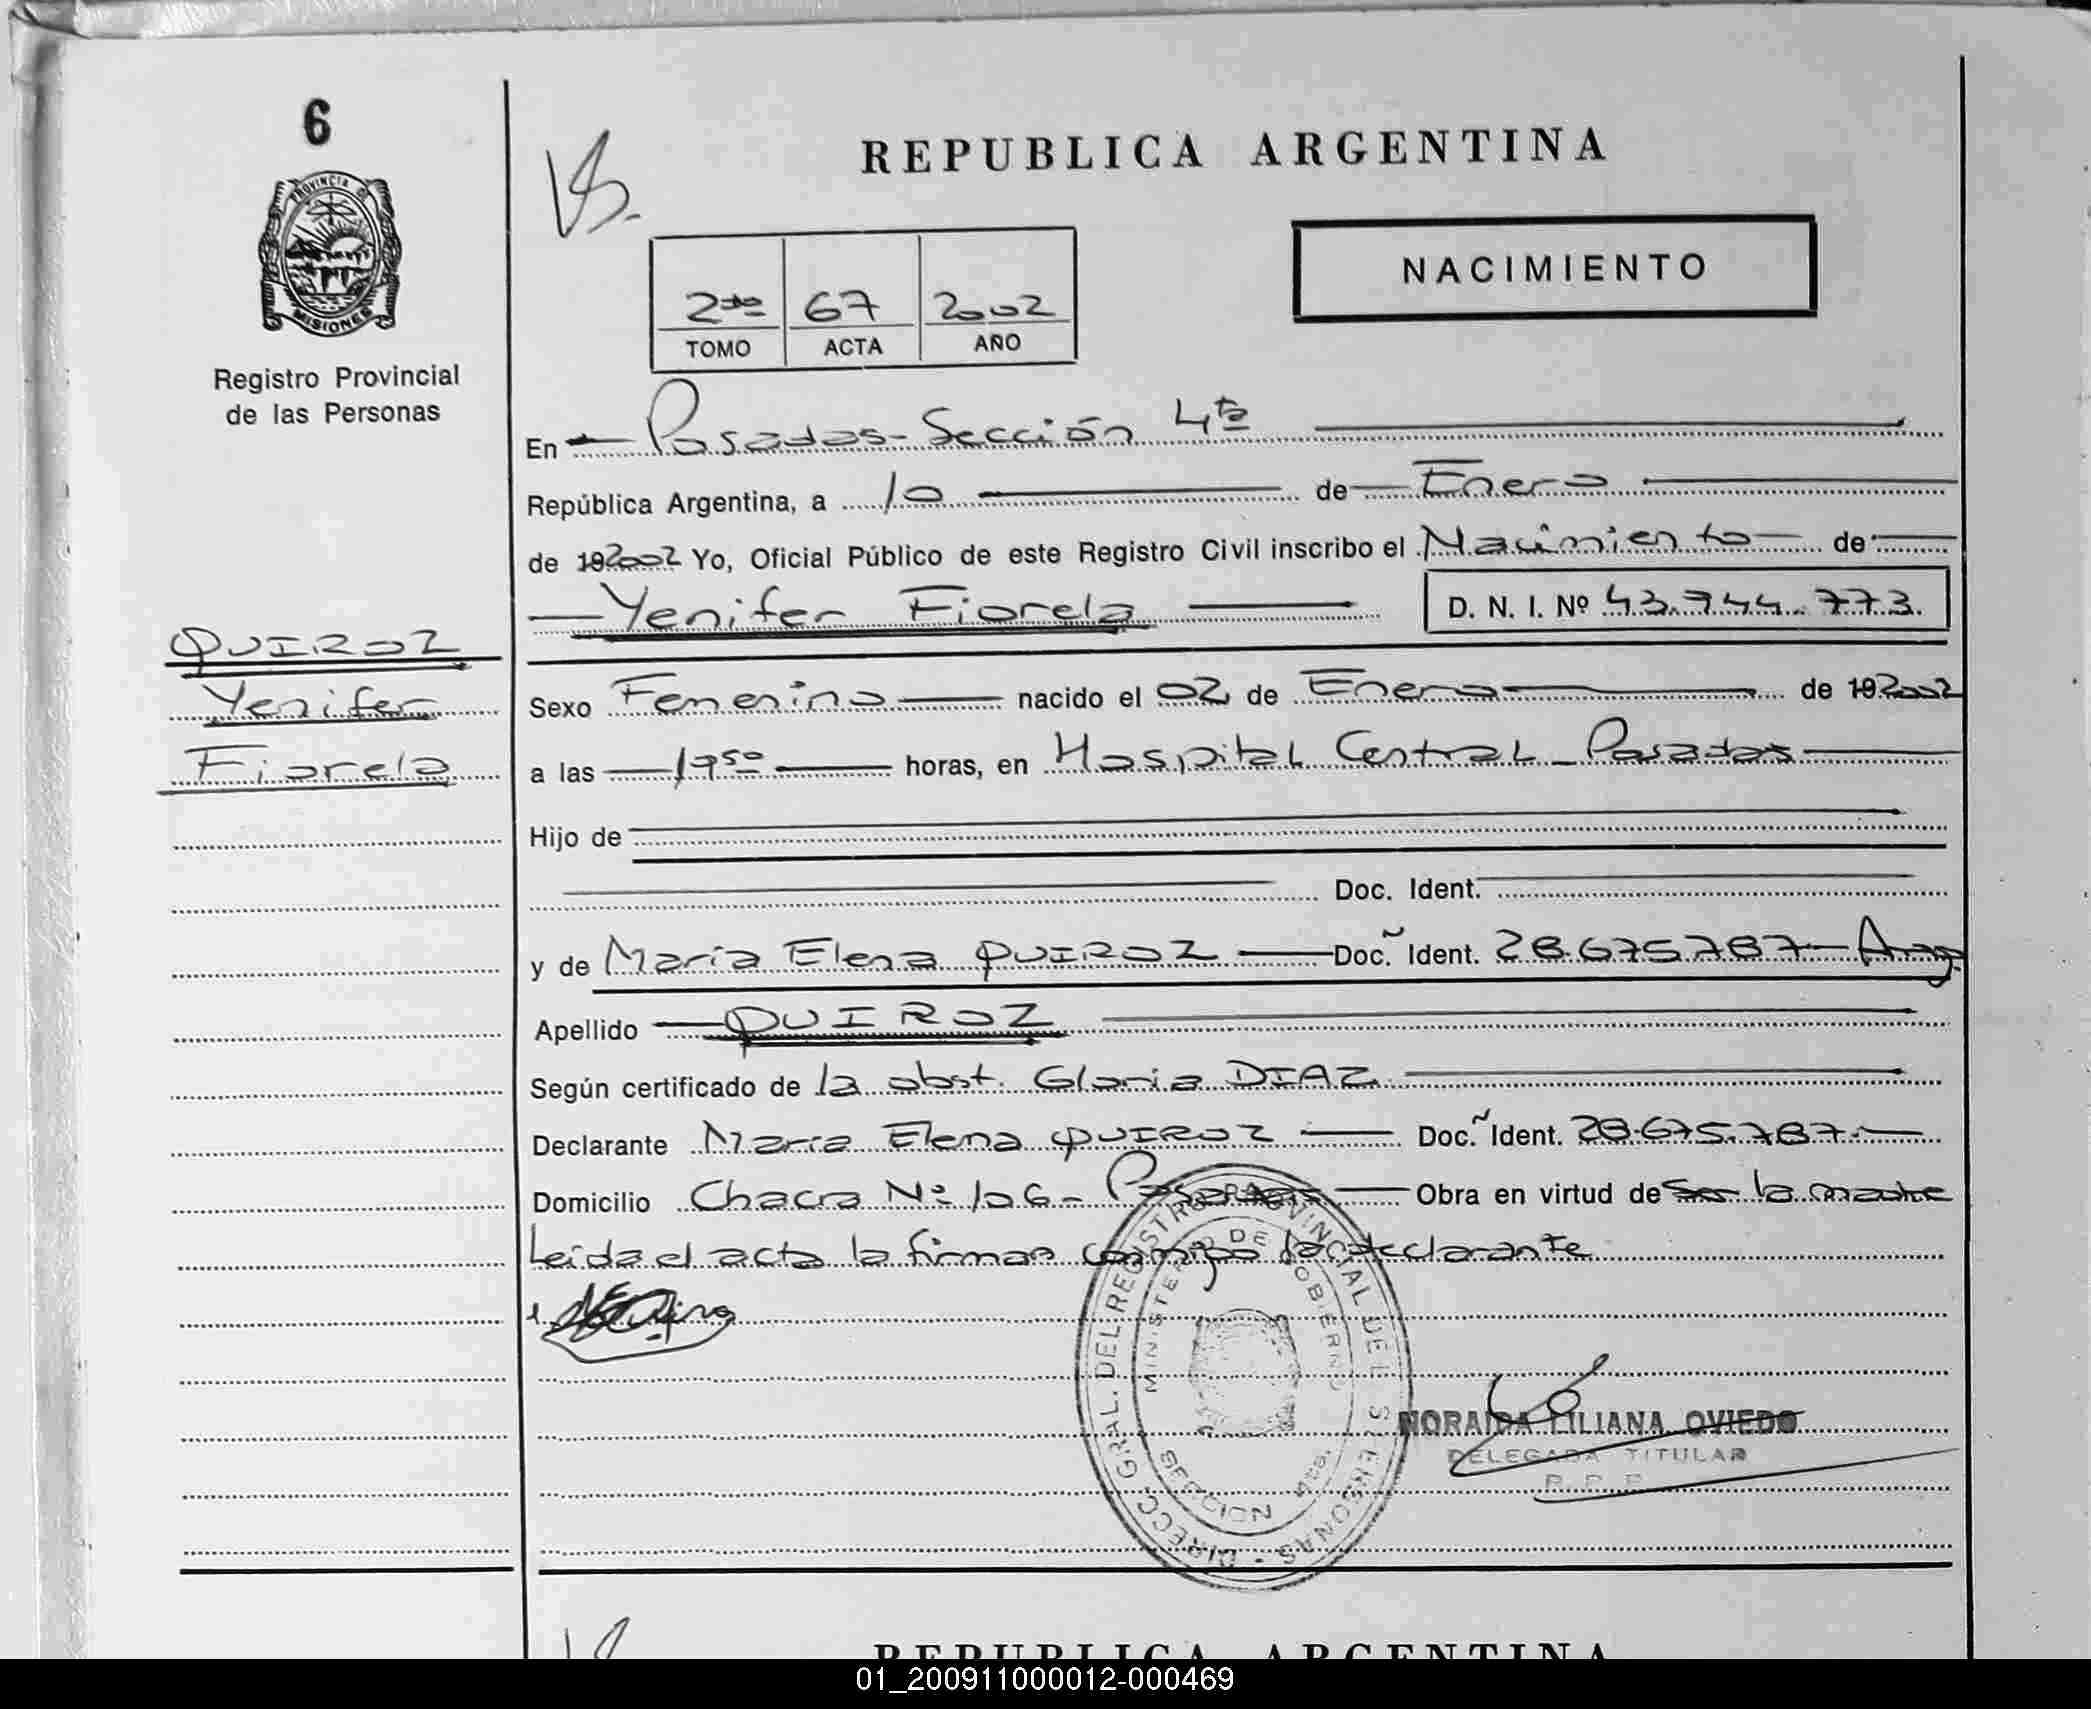 6
PROVINCIA DE
MISIONES
Registro Provincial
de las Personas
REPUBLICA ARGENTINA
NACIMIENTO
2do 67 2002
TOMO ACTA AÑO
En Posadas - Sección 4ta
República Argentina, a 10 de Enero
de 192002 Yo, Oficial Público de este Registro Civil inscribo el Nacimiento de
Yenifer Fiorela D. N. I. Nº 43.744.773.
QUIROZ
Yenifer
Fiorela
Sexo Femenino nacido el 02 de Enero de 192002
a las 1750 horas, en Hospital Central - Posadas
Hijo de
Doc. Ident.
y de María Elena QUIROZ Doc. Ident. 28.675.787 - Arg.
Apellido QUIROZ
Según certificado de la obst. Gloria DIAZ
Declarante María Elena QUIROZ Doc. Ident. 28.675.787.-
Domicilio Chacra Nº 106 - Posadas Obra en virtud de Ser la madre
Leída el acta la firman conmigo la declarante
DIRECC. GRAL. DEL REGISTRO PROVINCIAL DE LAS PERSONAS
MINISTERIO DE GOBIERNO
SECCION 4ta.
NORAIDA LILIANA OVIEDO
DELEGADA TITULAR
R. P. P.
REPUBLICA ARGENTINA
01_200911000012-000469